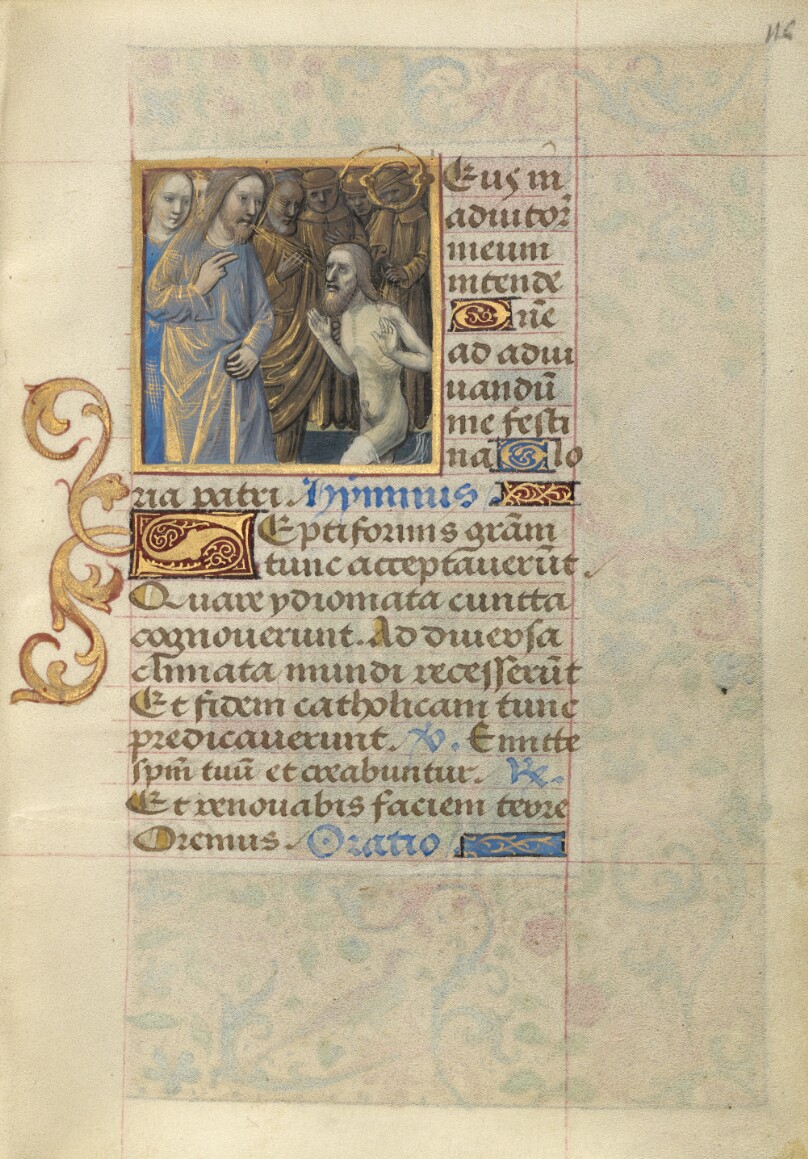 116
Eus in
adiutoꝝ
meum
intende
Dñe
ad adiu
uandū
me festi
na Glo
ria patri. Hymnus
Septiformis grãm
tunc acceptauerūt.
Quare ydiomata cuncta
cognouerunt. Ad diuersa
climata mundi recesserūt
Et fidem catholicam tunc
predicauerunt. V. Emitte
spm̄ tuū et creabuntur. R.
Et renouabis faciem terre
Oremus. Oratio